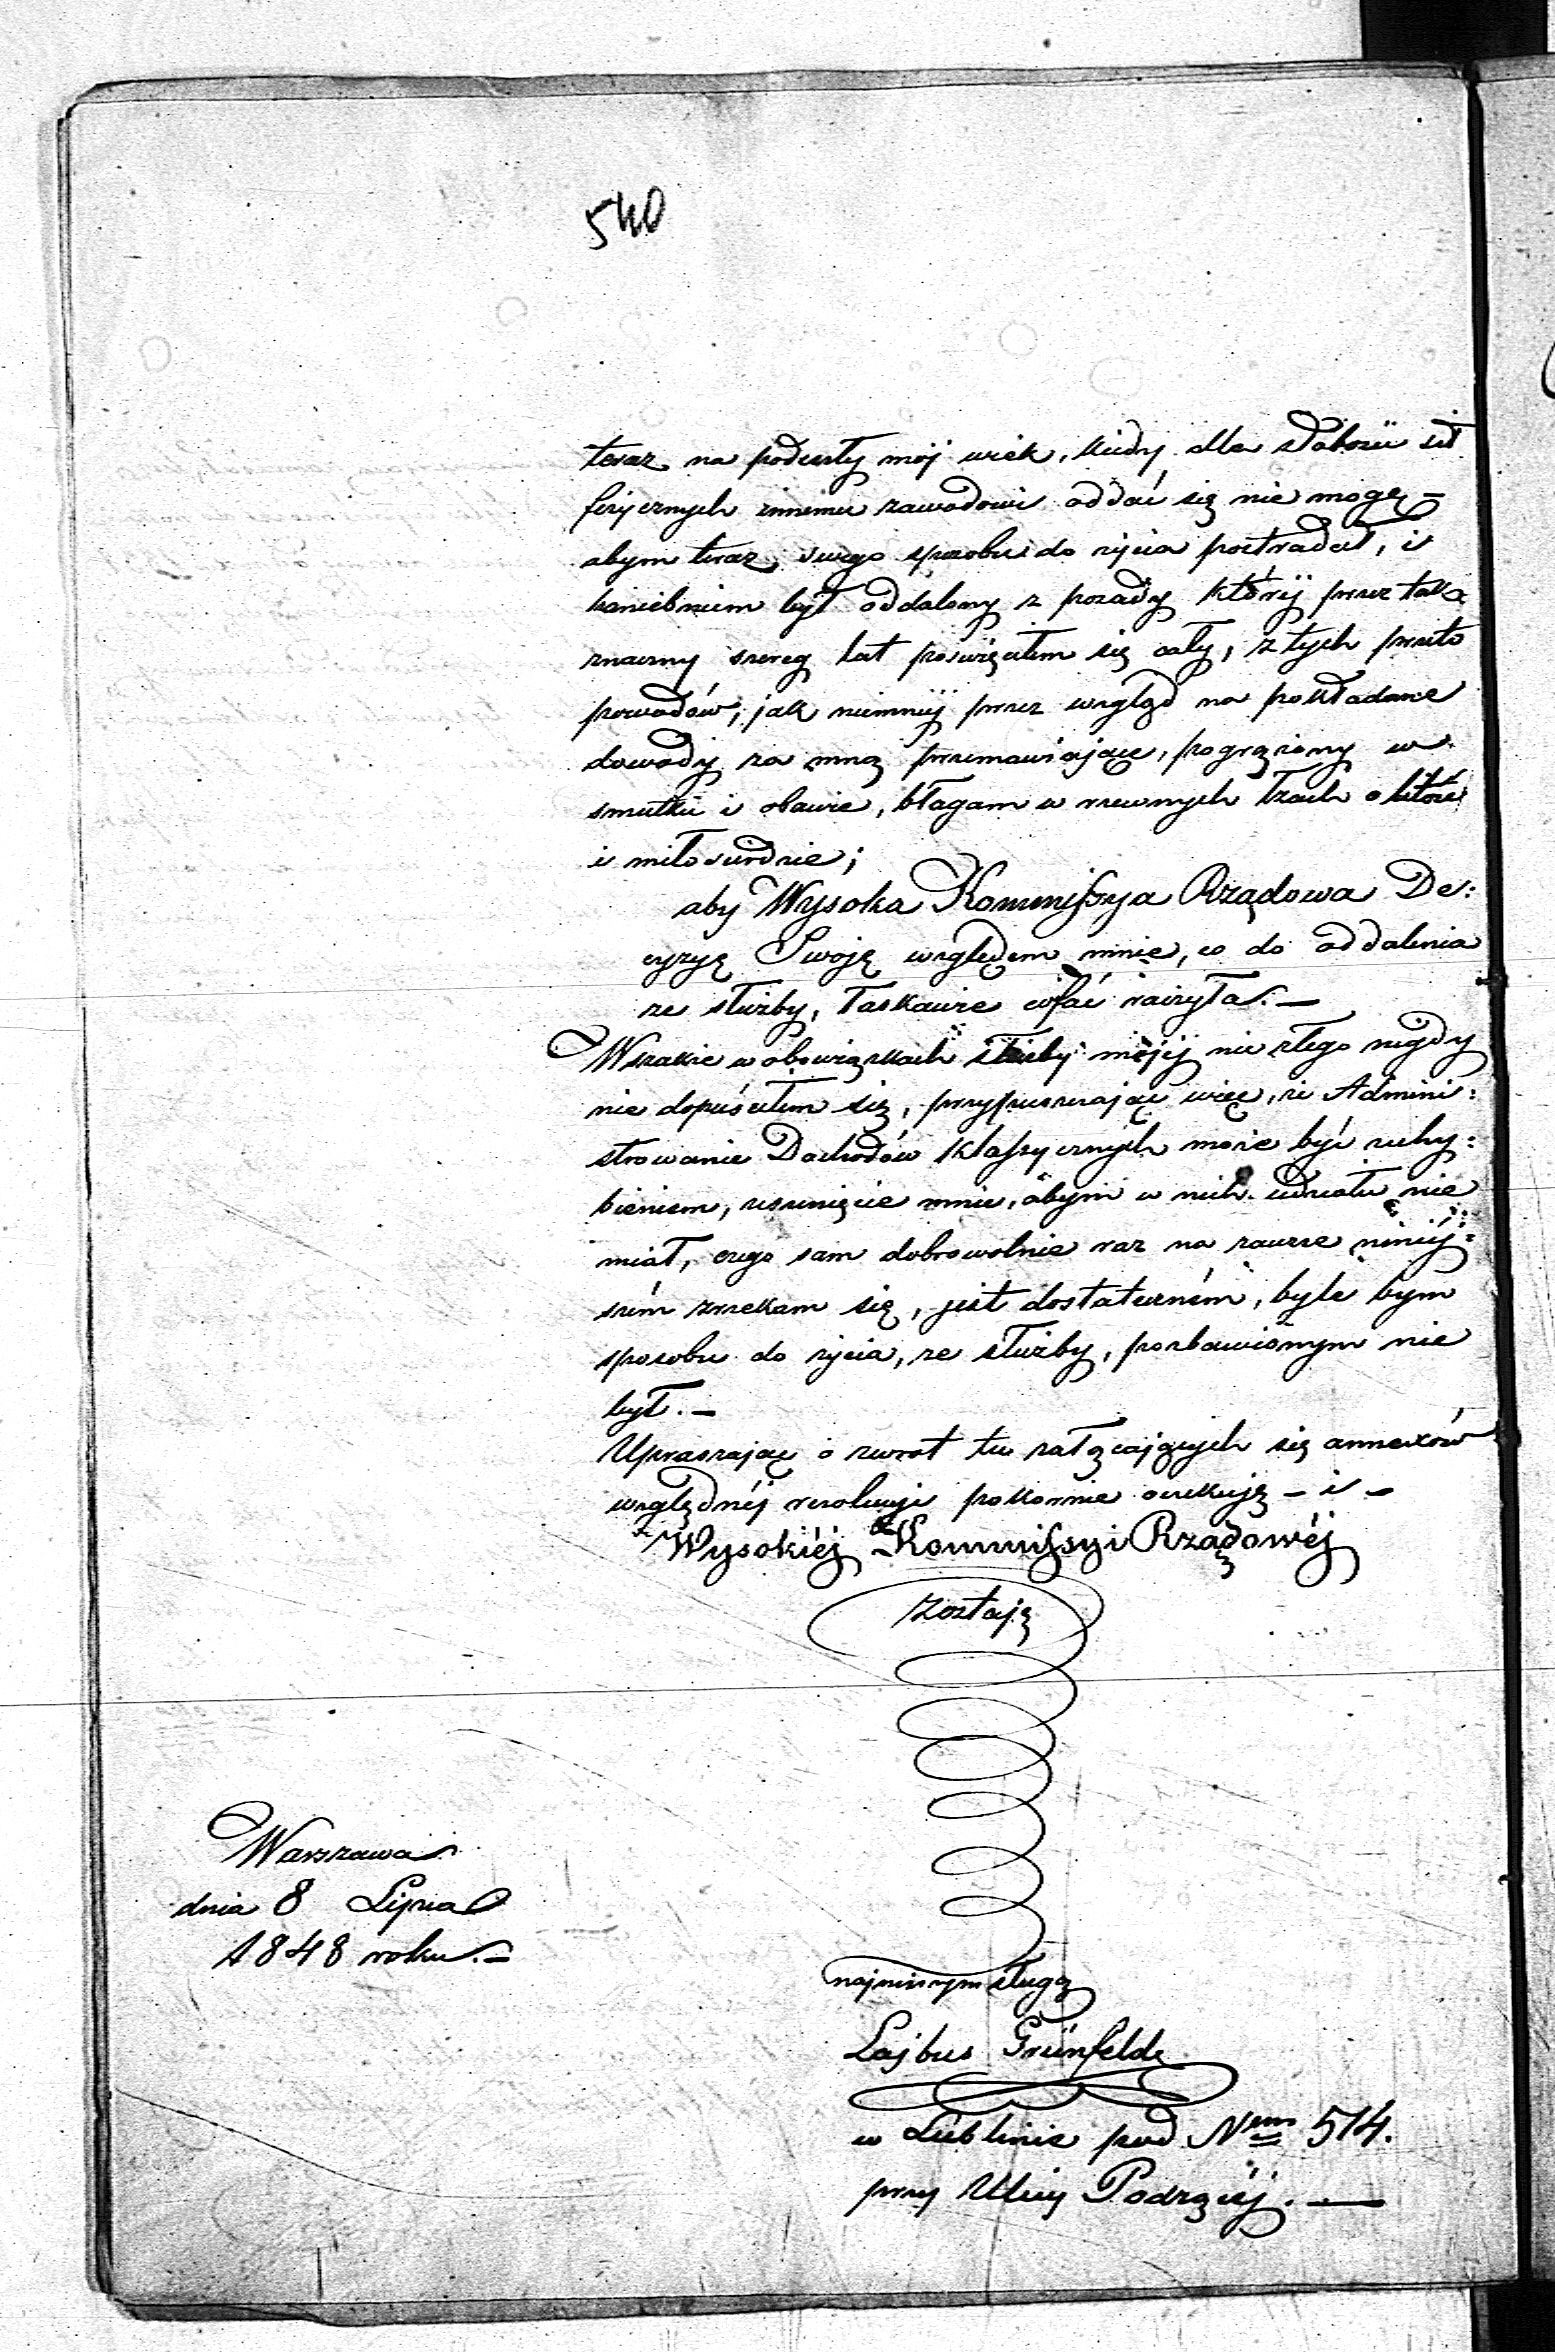 540
teraz na podeszły mój wiek, kiedy dla słabości sił
fizycznych innemu zawodowi oddać się nie mogę –
abym teraz, swego sposobu do życia postradał, i
haniebniem był oddalony z posady któréj przez tak
znaczny szereg lat poświęcałem się cały, z tych przeto
powodów, jak niemniéj przez wzgląd na pokładane
dowody za mną przemawiające, pogrążony w
smutku i obawie, błagam w rzewnych łzach o litość
i miłosierdzie;
aby Wysoka Kommissya Rządowa De:
cyzyę Swoję względem mnie, co do oddalenia
ze służby, łaskawie cofać raczyła. –
Wszakże w obowiązkach służby mojéj nic złego nigdy
nie dopuściłem się, przypuszczając więc, że Admini:
strowanie Dochodów klassycznych może być uchy:
bieniem, usunięcie mnie, abym w nich udziału nie
miał, czego sam dobrowolnie raz na zawsze niniéj:
szém zrzekam się, jest dostateczném, byle bym
sposobu do życia, ze służby, pozbawionym nie
był. –
Upraszając o zwrot tu załączających się annexów
względnéj rezolucyi pokornie oczekuję – i –
Wysokiéj Kommissyi Rządowéj
zostaję
Warszawa
dnia 8 Lipca
1848 roku. –
najniższym sługą
Lajbus Grünfeld
w Lublinie pod Nem 514.
przy Ulicy Podrzéj. —